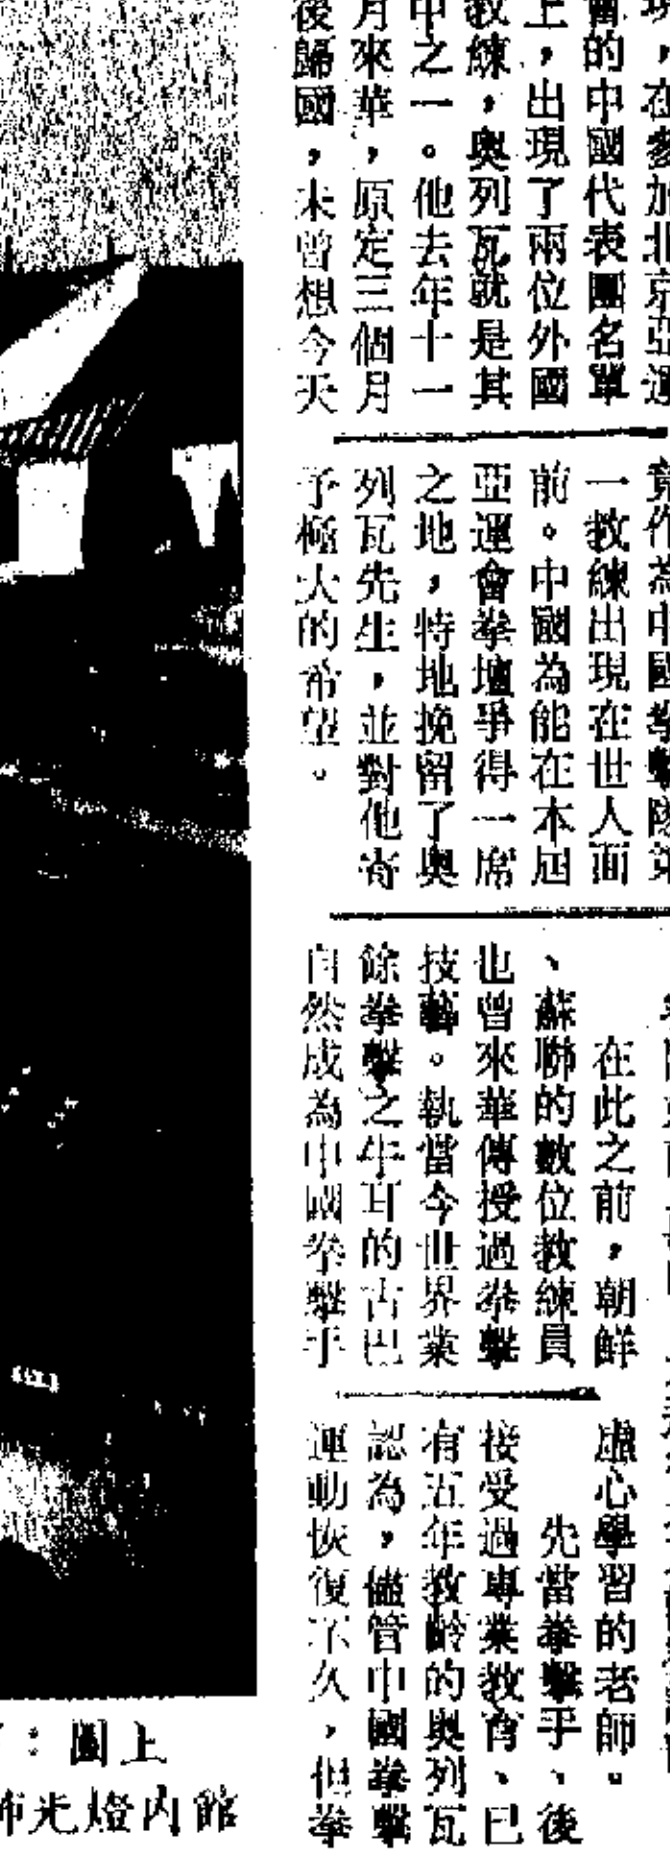 現，在參加北京亞運
會的中國代表團名單
上，出現了兩位外國
教練，奧列瓦就是其
中之一。他去年十一
月來華，原定三個月
後歸國，未曾想今天
竟作為中國拳擊隊第
一教練出現在世人面
前。中國為能在本屆
亞運會拳壇爭得一席
之地，特地挽留了奧
列瓦先生，並對他寄
予極大的希望。
在此之前，朝鮮
、蘇聯的數位教練員
也曾來華傳授過拳擊
技藝。執當今世界業
餘拳擊之牛耳的古巴
自然成為中國拳擊手
虛心學習的老師。
先當拳擊手、後
接受過專業教育、已
有五年教齡的奧列瓦
認為，儘管中國拳擊
運動恢復不久，但拳
上圖：
館內燈光師